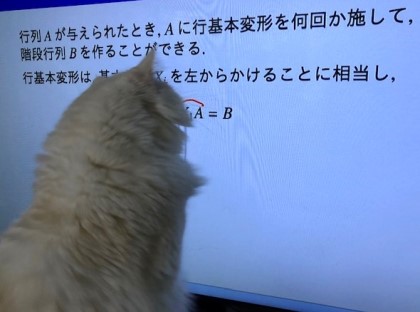 行列Aが与えられたとき, Aに行基本変形を何回か施して,
階段行列Bを作ることができる.
行基本変形は, を左からかけることに相当し,
A = B